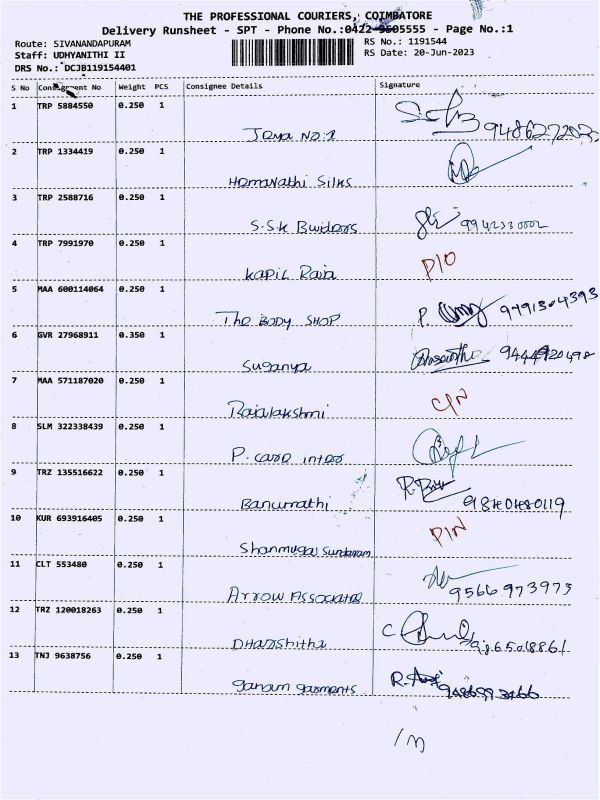 THE PROFESSIONAL COURIERS, COIMBATORE
Delivery Runsheet - SPT - Phone No.:0422-9505555 - Page No.:1
Route: SIVANANDAPURAM RS No.: 1191544
Staff: UDHYANITHI II RS Date: 20-Jun-2023
DRS No.: DCJB119154401
S No Consignment No Weight PCS Consignee Details Signature
1 TRP 5884550 0.250 1
Jaya No:1
2 TRP 1334419 0.250 1
Hemavathi Silks
3 TRP 2588716 0.250 1
S.S.K Buiders
4 TRP 7991970 0.250 1
Kapil Raja
5 MAA 600114064 0.250 1
The BODY SHOP P.
6 GVR 27968911 0.350 1
Suganya 9444920498
7 MAA 571187020 0.250 1
Rajalakshmi
8 SLM 322338439 0.250 1
P. Card
9 TRZ 135516622 0.250 1
Banumathi
10 KUR 693916405 0.250 1
Shanmuga Sundaram
11 CLT 553480 0.250 1
Arrow Associates 9566973975
12 TRZ 120018263 0.250 1
Dharshitha
13 TNJ 9638756 0.250 1
ganam garments